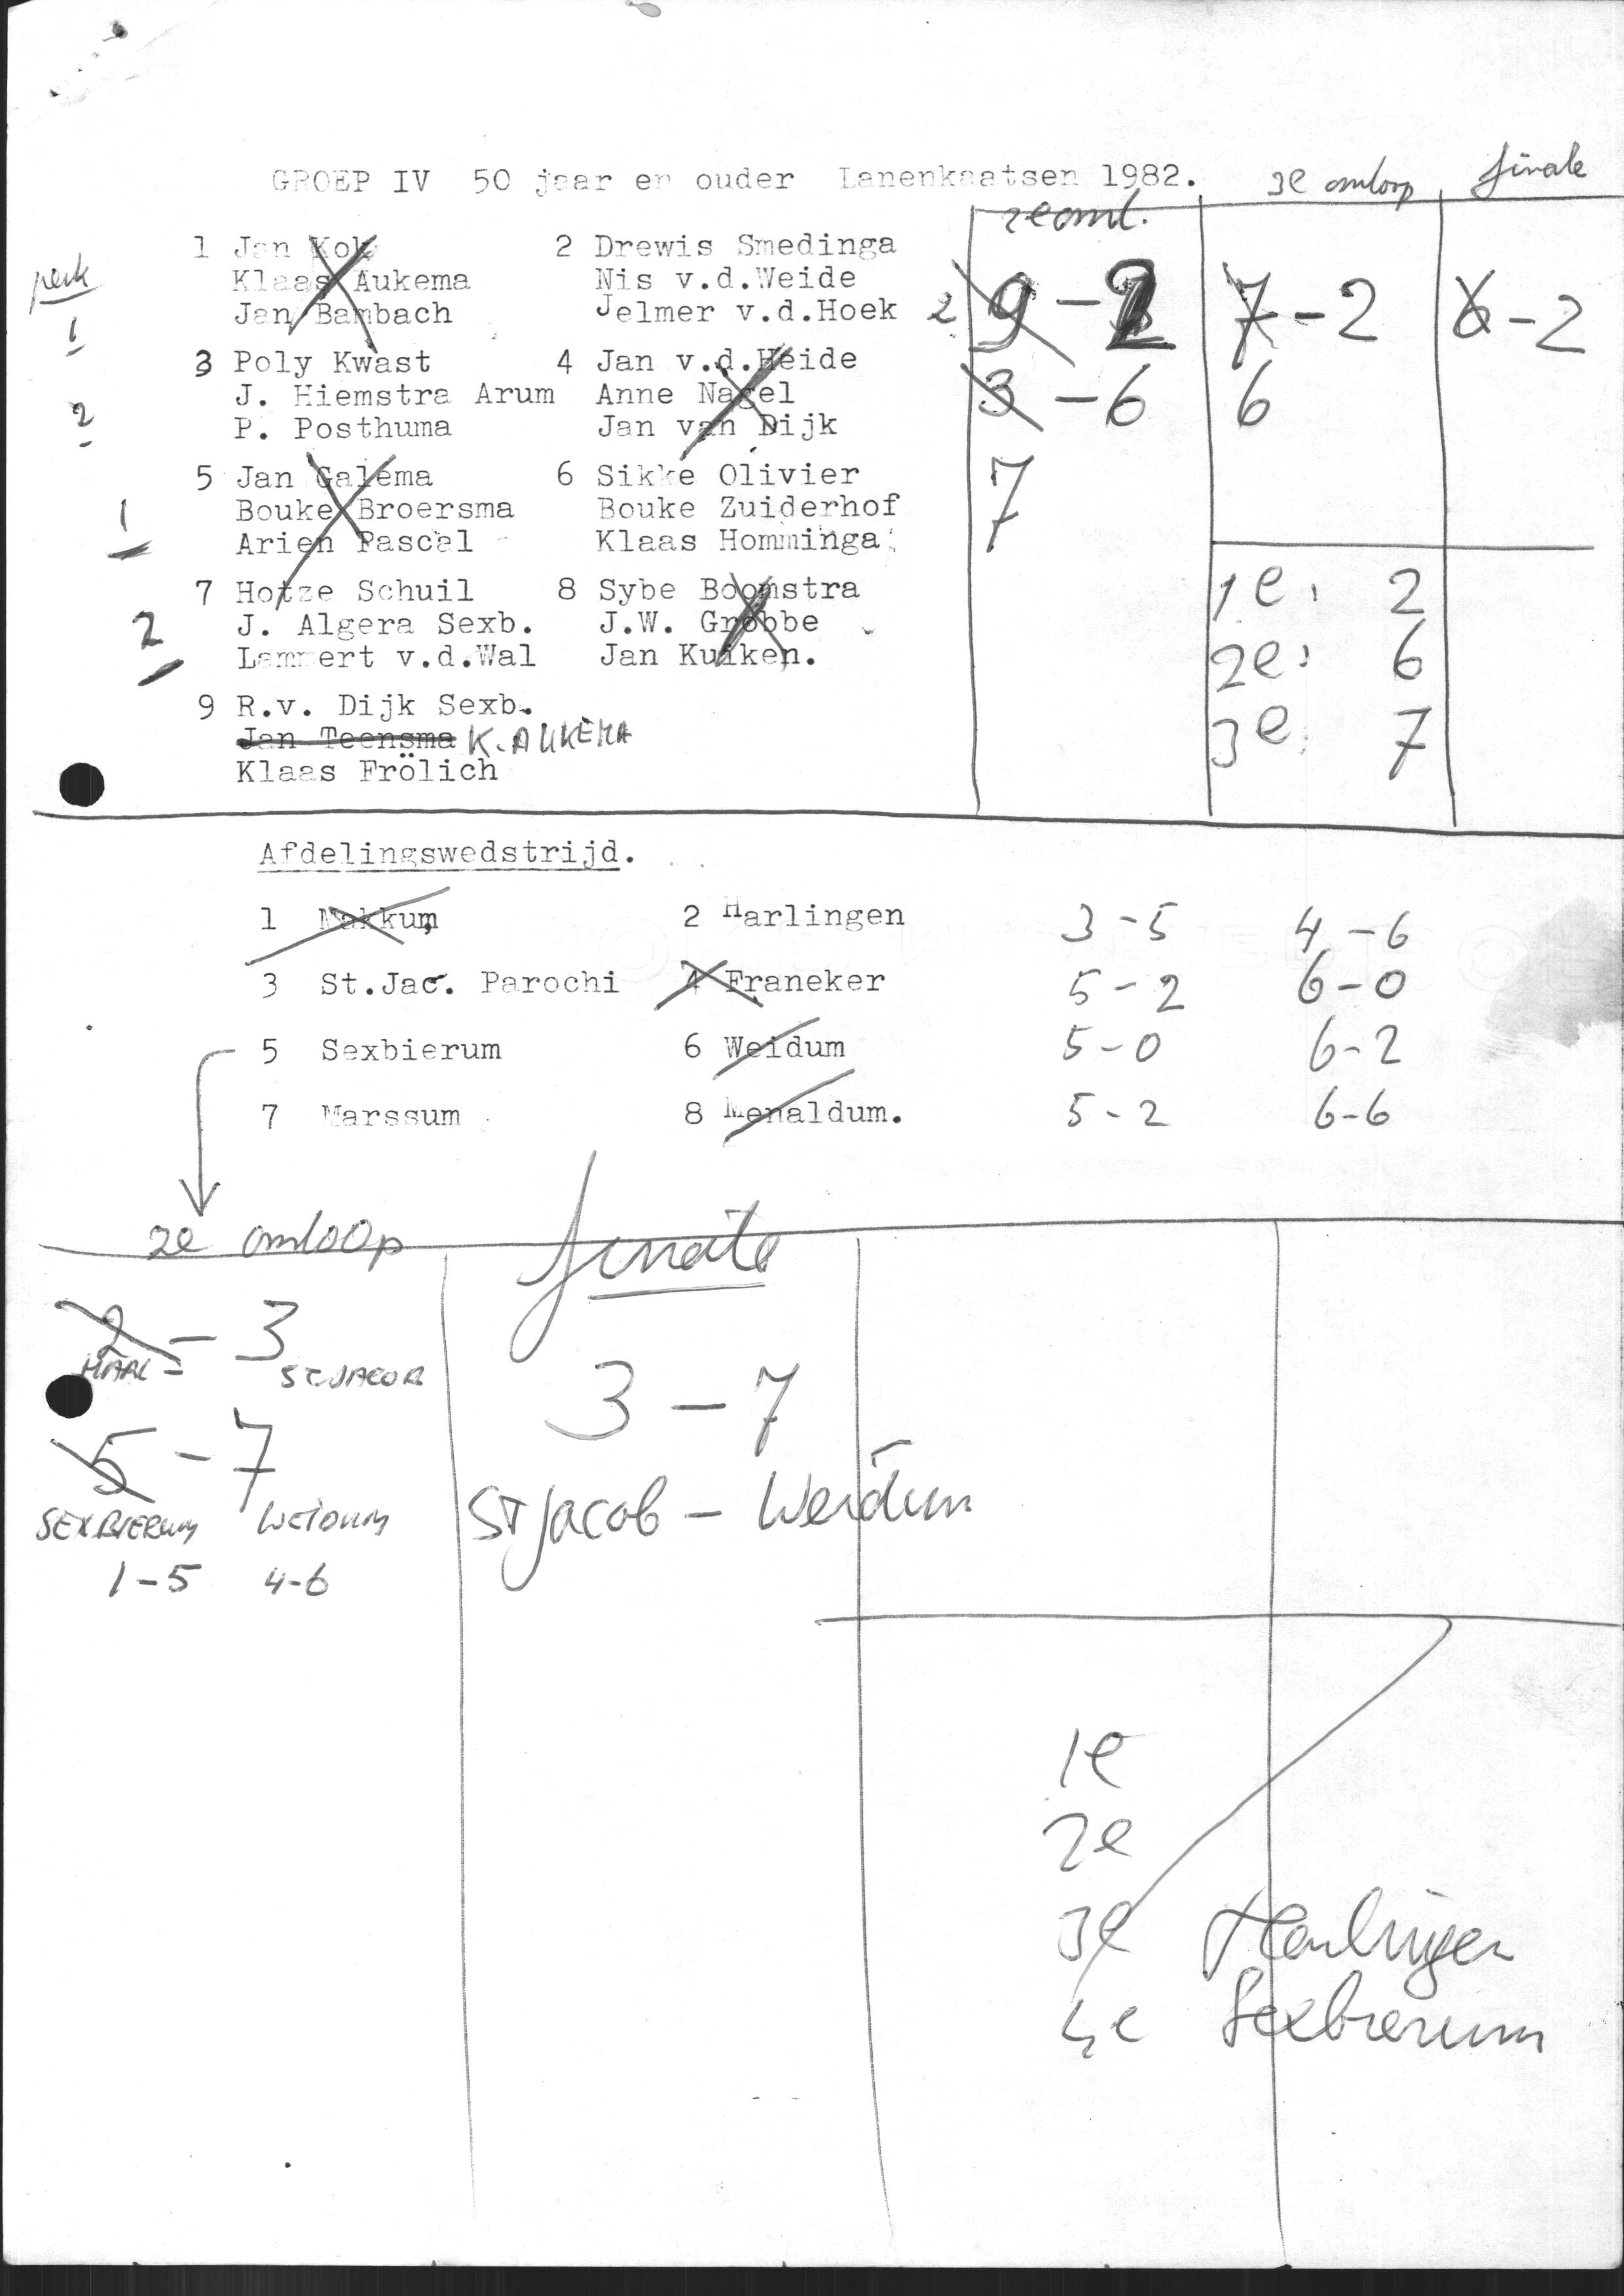 GROEP IV 50 jaar en ouder Lanenkaatsen 1982. 3e omloop finale
2e oml.
perk
1 Jan Kok 2 Drewis Smedinga
Klaas Aukema Nis v.d.Weide
Jan Bambach Jelmer v.d.Hoek 2 9 - 2 7 - 2 6 - 2
1
3 Poly Kwast 4 Jan v.d.Heide
J. Hiemstra Arum Anne Nagel 3 - 6 6
2
P. Posthuma Jan van Dijk
5 Jan Galema 6 Sikke Olivier 7
Bouke Broersma Bouke Zuiderhof
1
Arien Pascal Klaas Homminga
7 Hotze Schuil 8 Sybe Boomstra 1e: 2
J. Algera Sexb. J.W. Grobbe
2
Lammert v.d.Wal Jan Kuiken. 2e: 6
9 R.v. Dijk Sexb.
Jan Teensma K. AUKEMA 3e: 7
Klaas Frölich
Afdelingswedstrijd.
1 Makkum 2 Harlingen 3-5 4-6
3 St.Jac. Parochi 4 Franeker 5-2 6-0
5 Sexbierum 6 Weidum 5-0 6-2
7 Marssum 8 Menaldum. 5-2 6-6
2e omloop finale
2 - 3
HARL - ST JACOB
3 - 7
5 - 7
SEXBIERUM WEIDUM St Jacob - Weidum
1-5 4-6
1e
2e
3e Harlingen
4e Sexbierum